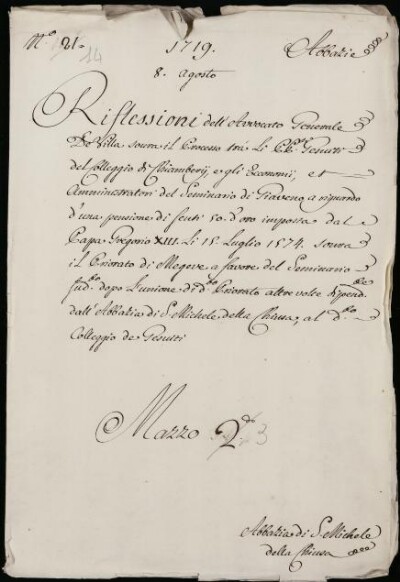 N.º 21.
14
1719.
Abbazie
8. Agosto
Riflessioni dell'Avvocato Generale
De Villa sovra il Processo tra Li PP. Gesuiti
del Colleggio di Chiamberij, e gli Economi, et
Amministratori del Seminario di Giaveno a riguardo
d'una pensione di scuti 50. d'oro imposta dal
Papa Gregorio XIII. Li 15. Luglio 1574. sovra
il Priorato di Megeve a favore del Seminario
sud.to dopo l'unione di d.to Priorato altre volte dipend.e
dall'Abbazia di S. Michele della Chiusa, al d.to
Colleggio de Gesuiti
Mazzo 2.do 3
Abbazia di S. Michele
della Chiusa